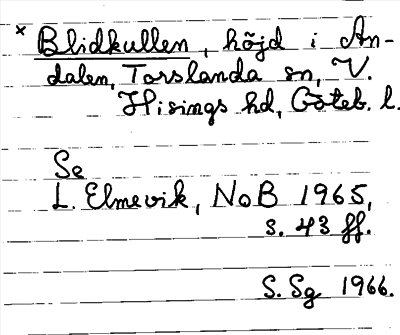 × Blidkullen, höjd i An-
dalen, Torslanda sn, V.
Hisings hd, Göteb. l.
Se
L. Elmevik, NoB 1965,
s. 43 ff.
S. Sg 1966.